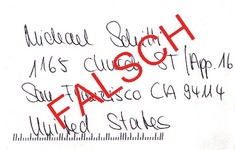 Michael Schitti
1165 Church ST / App. 16
San Francisco CA 94114
United States
FALSCH